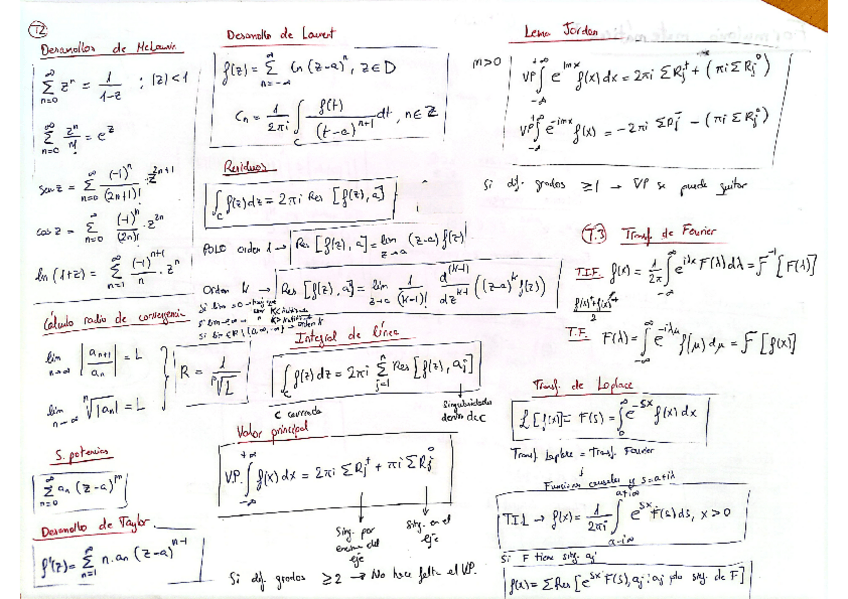 T2
Desarrollos de McLaurin
∞ ∑ n=0 z^n = 1/(1-z) ; |z|<1
∞ ∑ n=0 z^n/n! = e^z
sen z = ∞ ∑ n=0 (-1)^n/(2n+1)! · z^(2n+1)
cos z = ∞ ∑ n=0 (-1)^n/(2n)! · z^(2n)
ln(1+z) = ∞ ∑ n=1 (-1)^(n+1)/n · z^n
Cálculo radio de convergencia
lim n→∞ |a_(n+1)/a_n| = L
lim n→∞ ⁿ√|a_n| = L
R = 1/ᵖ√L
S. potencias
∞ ∑ n=0 a_n (z-a)^(pn)
Desarrollo de Taylor.
f'(z) = ∞ ∑ n=1 n·a_n (z-a)^(n-1)
Desarrollo de Laurent
f(z) = ∞ ∑ n=-∞ C_n (z-a)^n, z∈D
C_n = 1/(2πi) ∫_C f(t)/(t-a)^(n+1) dt, n∈Z
Residuos
∫_C f(z)dz = 2πi Res [f(z), a]
POLO orden 1 → Res [f(z), a] = lim z→a (z-a) f(z)
Orden k → Res [f(z), a] = lim z→a 1/(k-1)! d^(k-1)/dz^(k-1) ((z-a)^k f(z))
Integral de línea
∫_C f(z) dz = 2πi n ∑ j=1 Res [f(z), a_j]
C cerrada
Singularidades
dentro de C
Valor principal
V.P. ∫ +∞ -∞ f(x) dx = 2πi ∑ R_j^+ + πi ∑ R_j^0
Sing. por
encima del
eje
Sing. en el
eje
Si dif. grados ≥2 → No hace falta el VP.
Lema Jordan
m>0
VP ∫ +∞ -∞ e^(imx) f(x) dx = 2πi ∑ R_j^+ + (πi ∑ R_j^0)
VP ∫ +∞ -∞ e^(-imx) f(x) = -2πi ∑ R_j^- - (πi ∑ R_j^0)
Si dif. grados ≥1 → VP se puede quitar
T.3 Transf. de Fourier
T.I.F. f(x) = 1/2π ∫ ∞ -∞ e^(iλx) F(λ) dλ = F^-1 [F(λ)]
T.F. F(λ) = ∫ ∞ -∞ e^(-iλμ) f(μ) dμ = F [f(x)]
Transf. de Laplace
L [f(x)] = F(s) = ∫ ∞ 0 e^(-sx) f(x) dx
Transf Laplace = Transf. Fourier
Funciones causales y s=a+iλ
T.I.L → f(x) = 1/2πi ∫ a+i∞ a-i∞ e^(sx) F(s) ds, x>0
Si F tiene sing. a_j
f(x) = ∑ Res [e^(sx) F(s), a_j; a_j pto sing. de F]